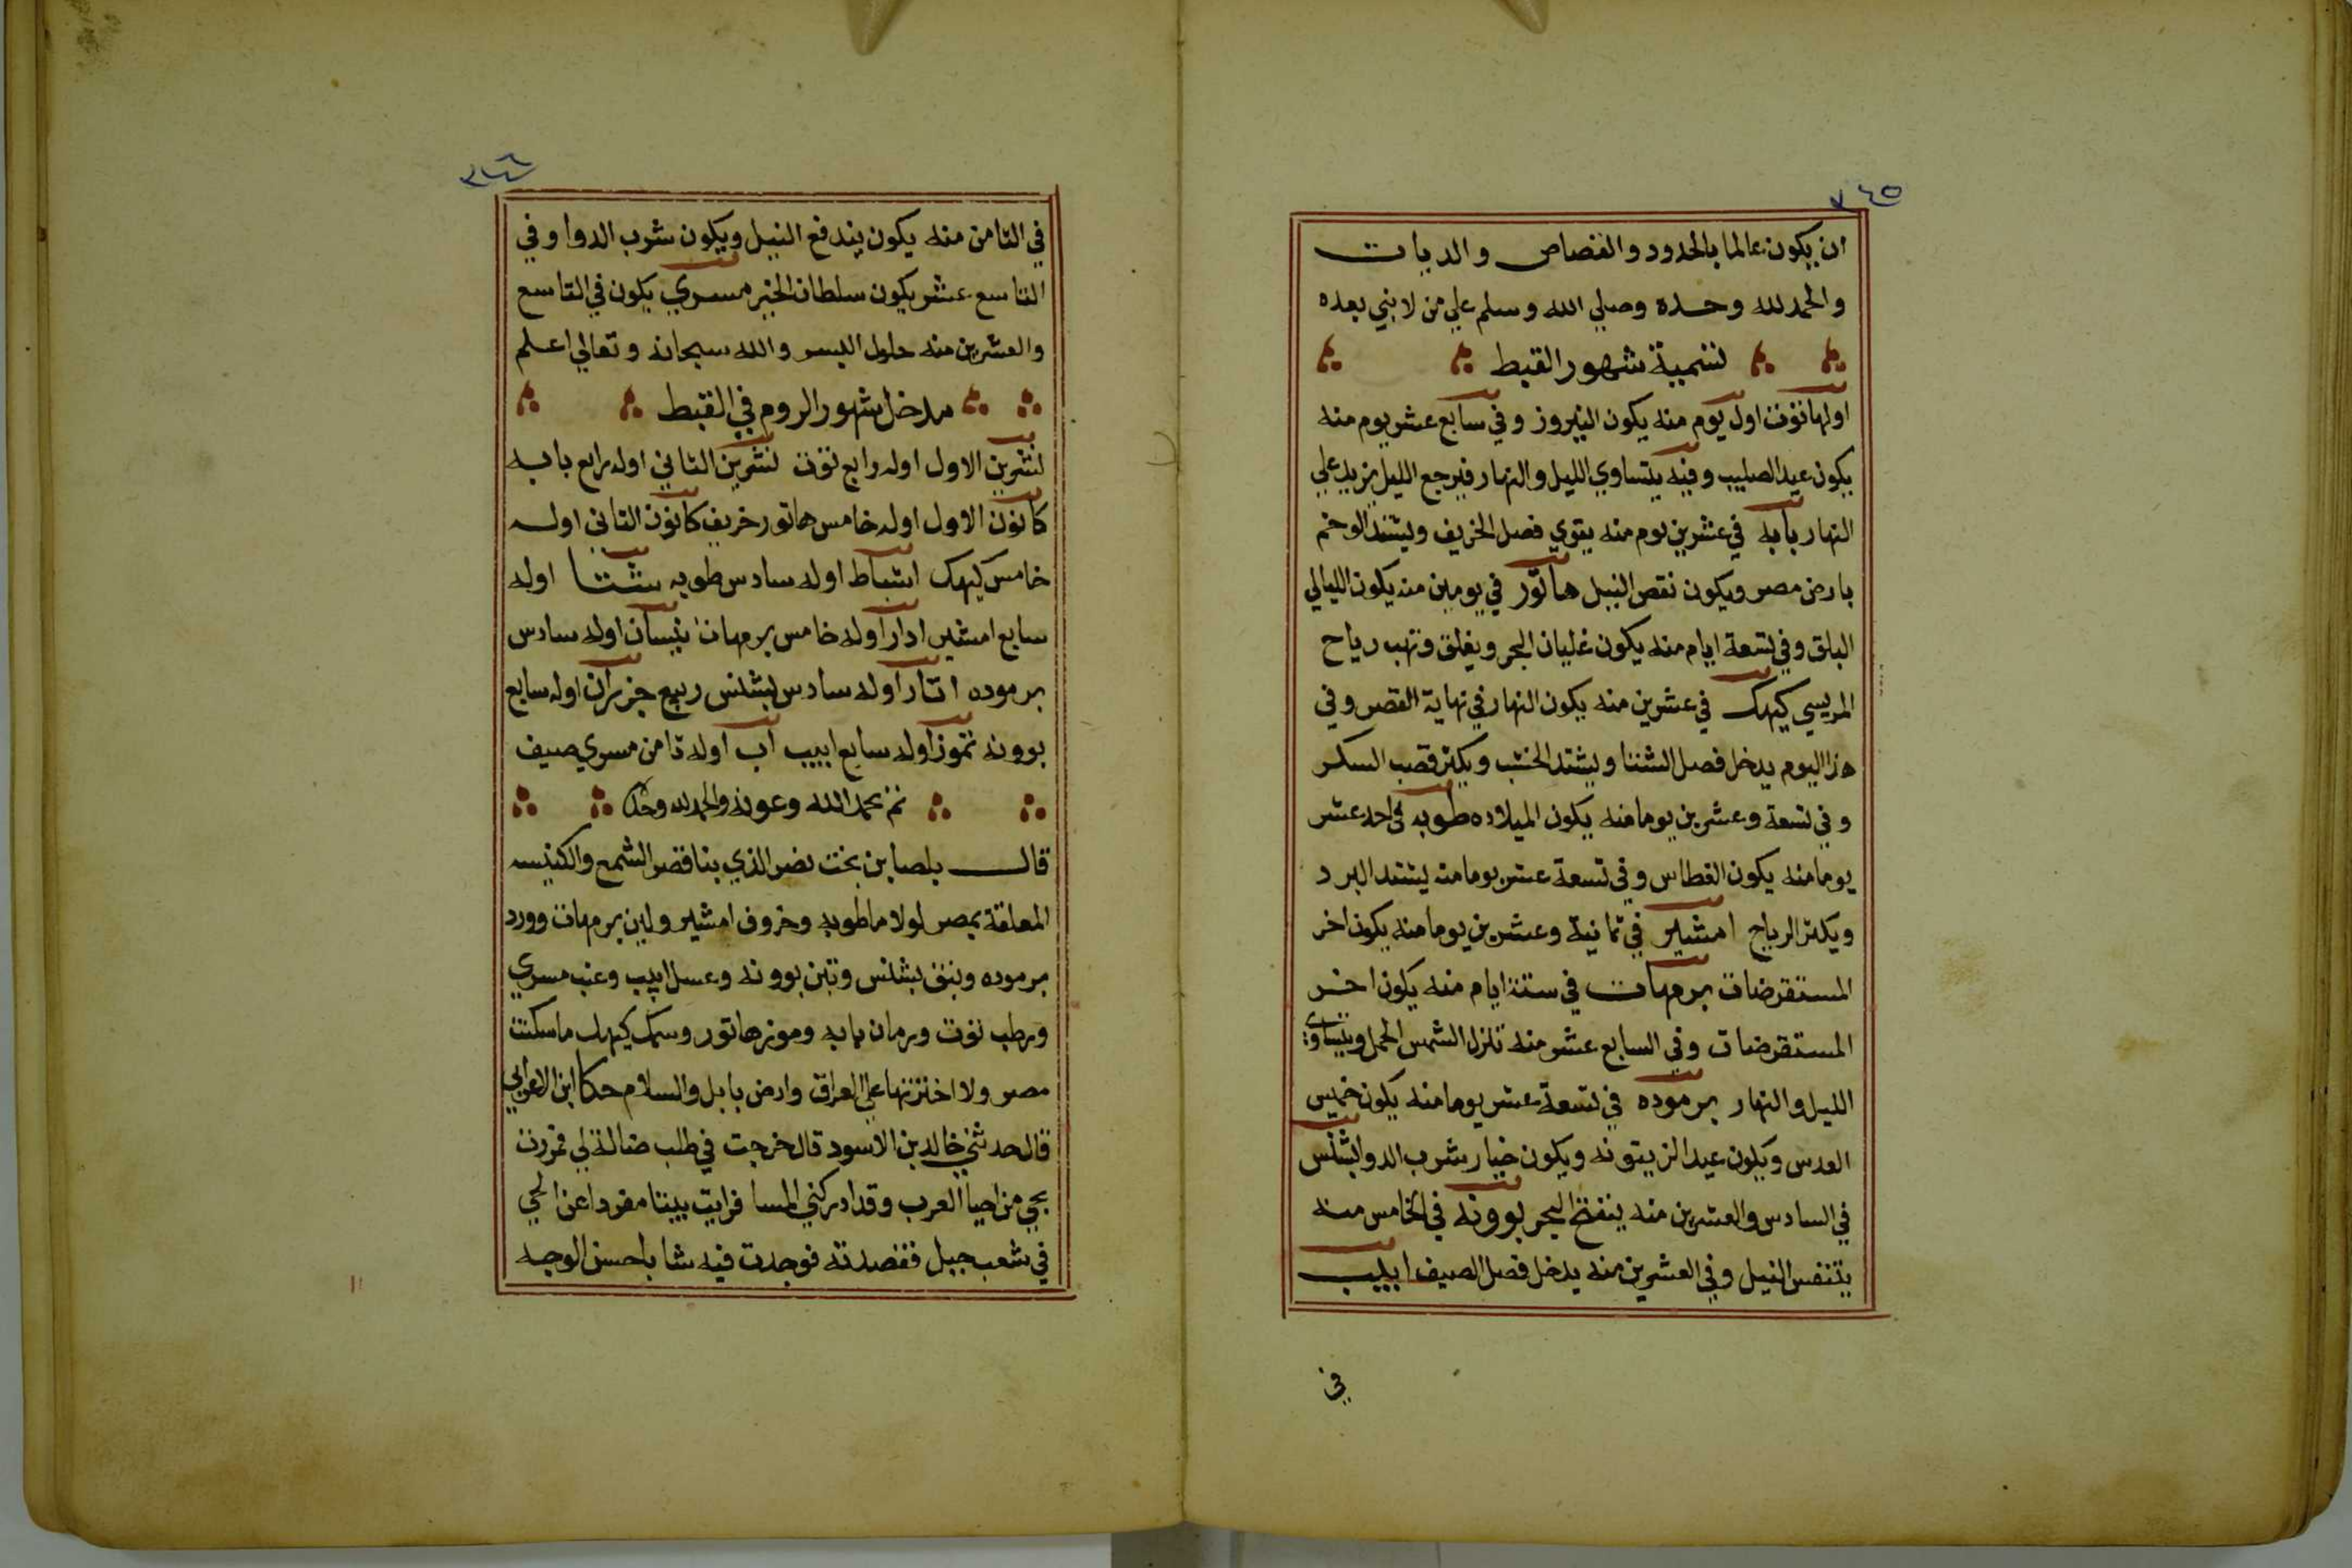 ٣٤٥
ان يكون عالما بالحدود والقصاص والديات
والحمد لله وحده وصلي الله وسلم علي من لا نبي بعده
تسمية شهور القبط
اولها توت اول يوم منه يكون النيروز وفي سابع عشر يوم منه
يكون عيد الصليب وفيه يتساوي الليل والنهار فيرجع الليل يزيد علي
النهار بابه في عشرين يوم منه يقوي فصل الخريف ويشتد الوخم
بارض مصر ويكون نقص النيل هاتور في يومين منه يكون الليالي
البلق وفي تسعة ايام منه يكون غليان البحر ويغلق وتهب رياح
المريسي كيهك في عشرين منه يكون النهار في نهاية القصر وفي
هذا اليوم يدخل فصل الشتا ويشتد الخشب ويكثر قصب السكر
وفي تسعة وعشرين يوما منه يكون الميلاد ه طوبه في احد عشر
يوما منه يكون الغطاس وفي تسعة عشر يوما منه يشتد البرد
ويكثر الرياح امشير في ثمانية وعشرين يوما منه يكون اخر
المستقرضات برمهات في ستة ايام منه يكون اخر
المستقرضات وفي السابع عشر منه تنزل الشمس الحمل ويتساوي
الليل والنهار برموده في تسعة عشر يوما منه يكون خميس
العدس ويكون عيد الزيتونه ويكون خيار شرب الدوا بشنس
في السادس والعشرين منه ينفتح البحر بوونه في الخامس منه
يتنفس النيل وفي العشرين منه يدخل فصل الصيف ابيب
في
٣٤٦
في الثامن منه يكون يندفع النيل ويكون شرب الدوا وفي
التاسع عشر يكون سلطان الخبر مسري يكون في التاسع
والعشرين منه حلول اليسر والله سبحانه وتعالي اعلم
مدخل شهور الروم في القبط
تشرين الاول اوله رابع توت تشرين الثاني اوله رابع بابه
كانون الاول اوله خامس هاتور خريف كانون الثاني اوله
خامس كيهك اشباط اوله سادس طوبه شتا اوله
سابع امشير ادار اوله خامس برمهات نيسان اوله سادس
برموده اتار اوله سادس بشنس ربيع حزيران اوله سابع
بوونه تموز اوله سابع ابيب اب اوله ثامن مسري صيف
تم بحمد الله وعونه والحمد لله وحده
قال بلصا بن بخت نصر الذي بنا قصر الشمع والكنيسه
المعلقة بمصر لولا ما طوبه وخروف امشير ولبن برمهات وورد
برموده ونبق بشنس وتين بوونه وعسل ابيب وعنب مسري
ورطب توت ورمان بابه وموز هاتور وسمك كيهك ما سكنت
مصر ولا اخترتها علي العراق وارض بابل والسلام حكا ابن الاعرابي
قال حدثني خالد بن الاسود قال خرجت في طلب ضالة لي فمررت
بحي من احيا العرب وقد ادركني المسا فرايت بيتا مفردا عن الحي
في شعب جبل فقصدته فوجدت فيه شابا حسن الوجه